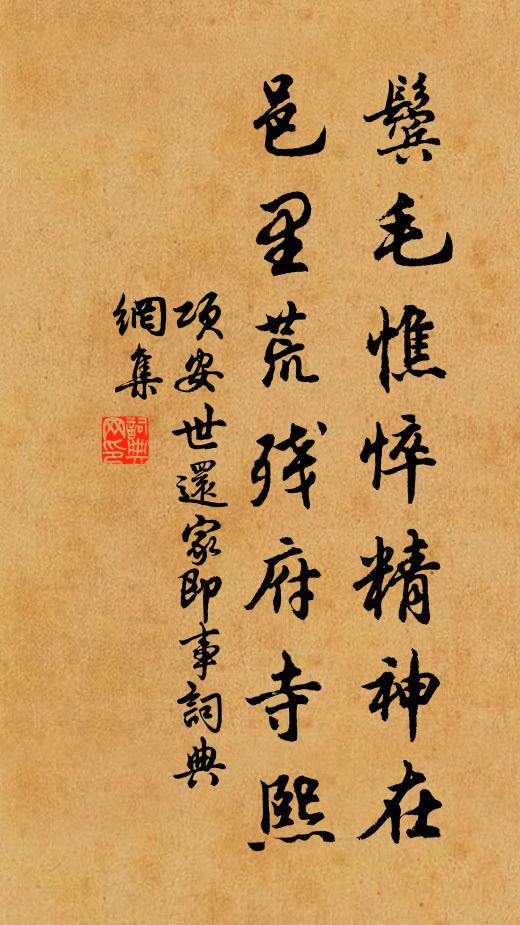 鬢毛憔悴精神在
邑里荒残府寺熙
項安世還家即事詞典
網集
詞典網印